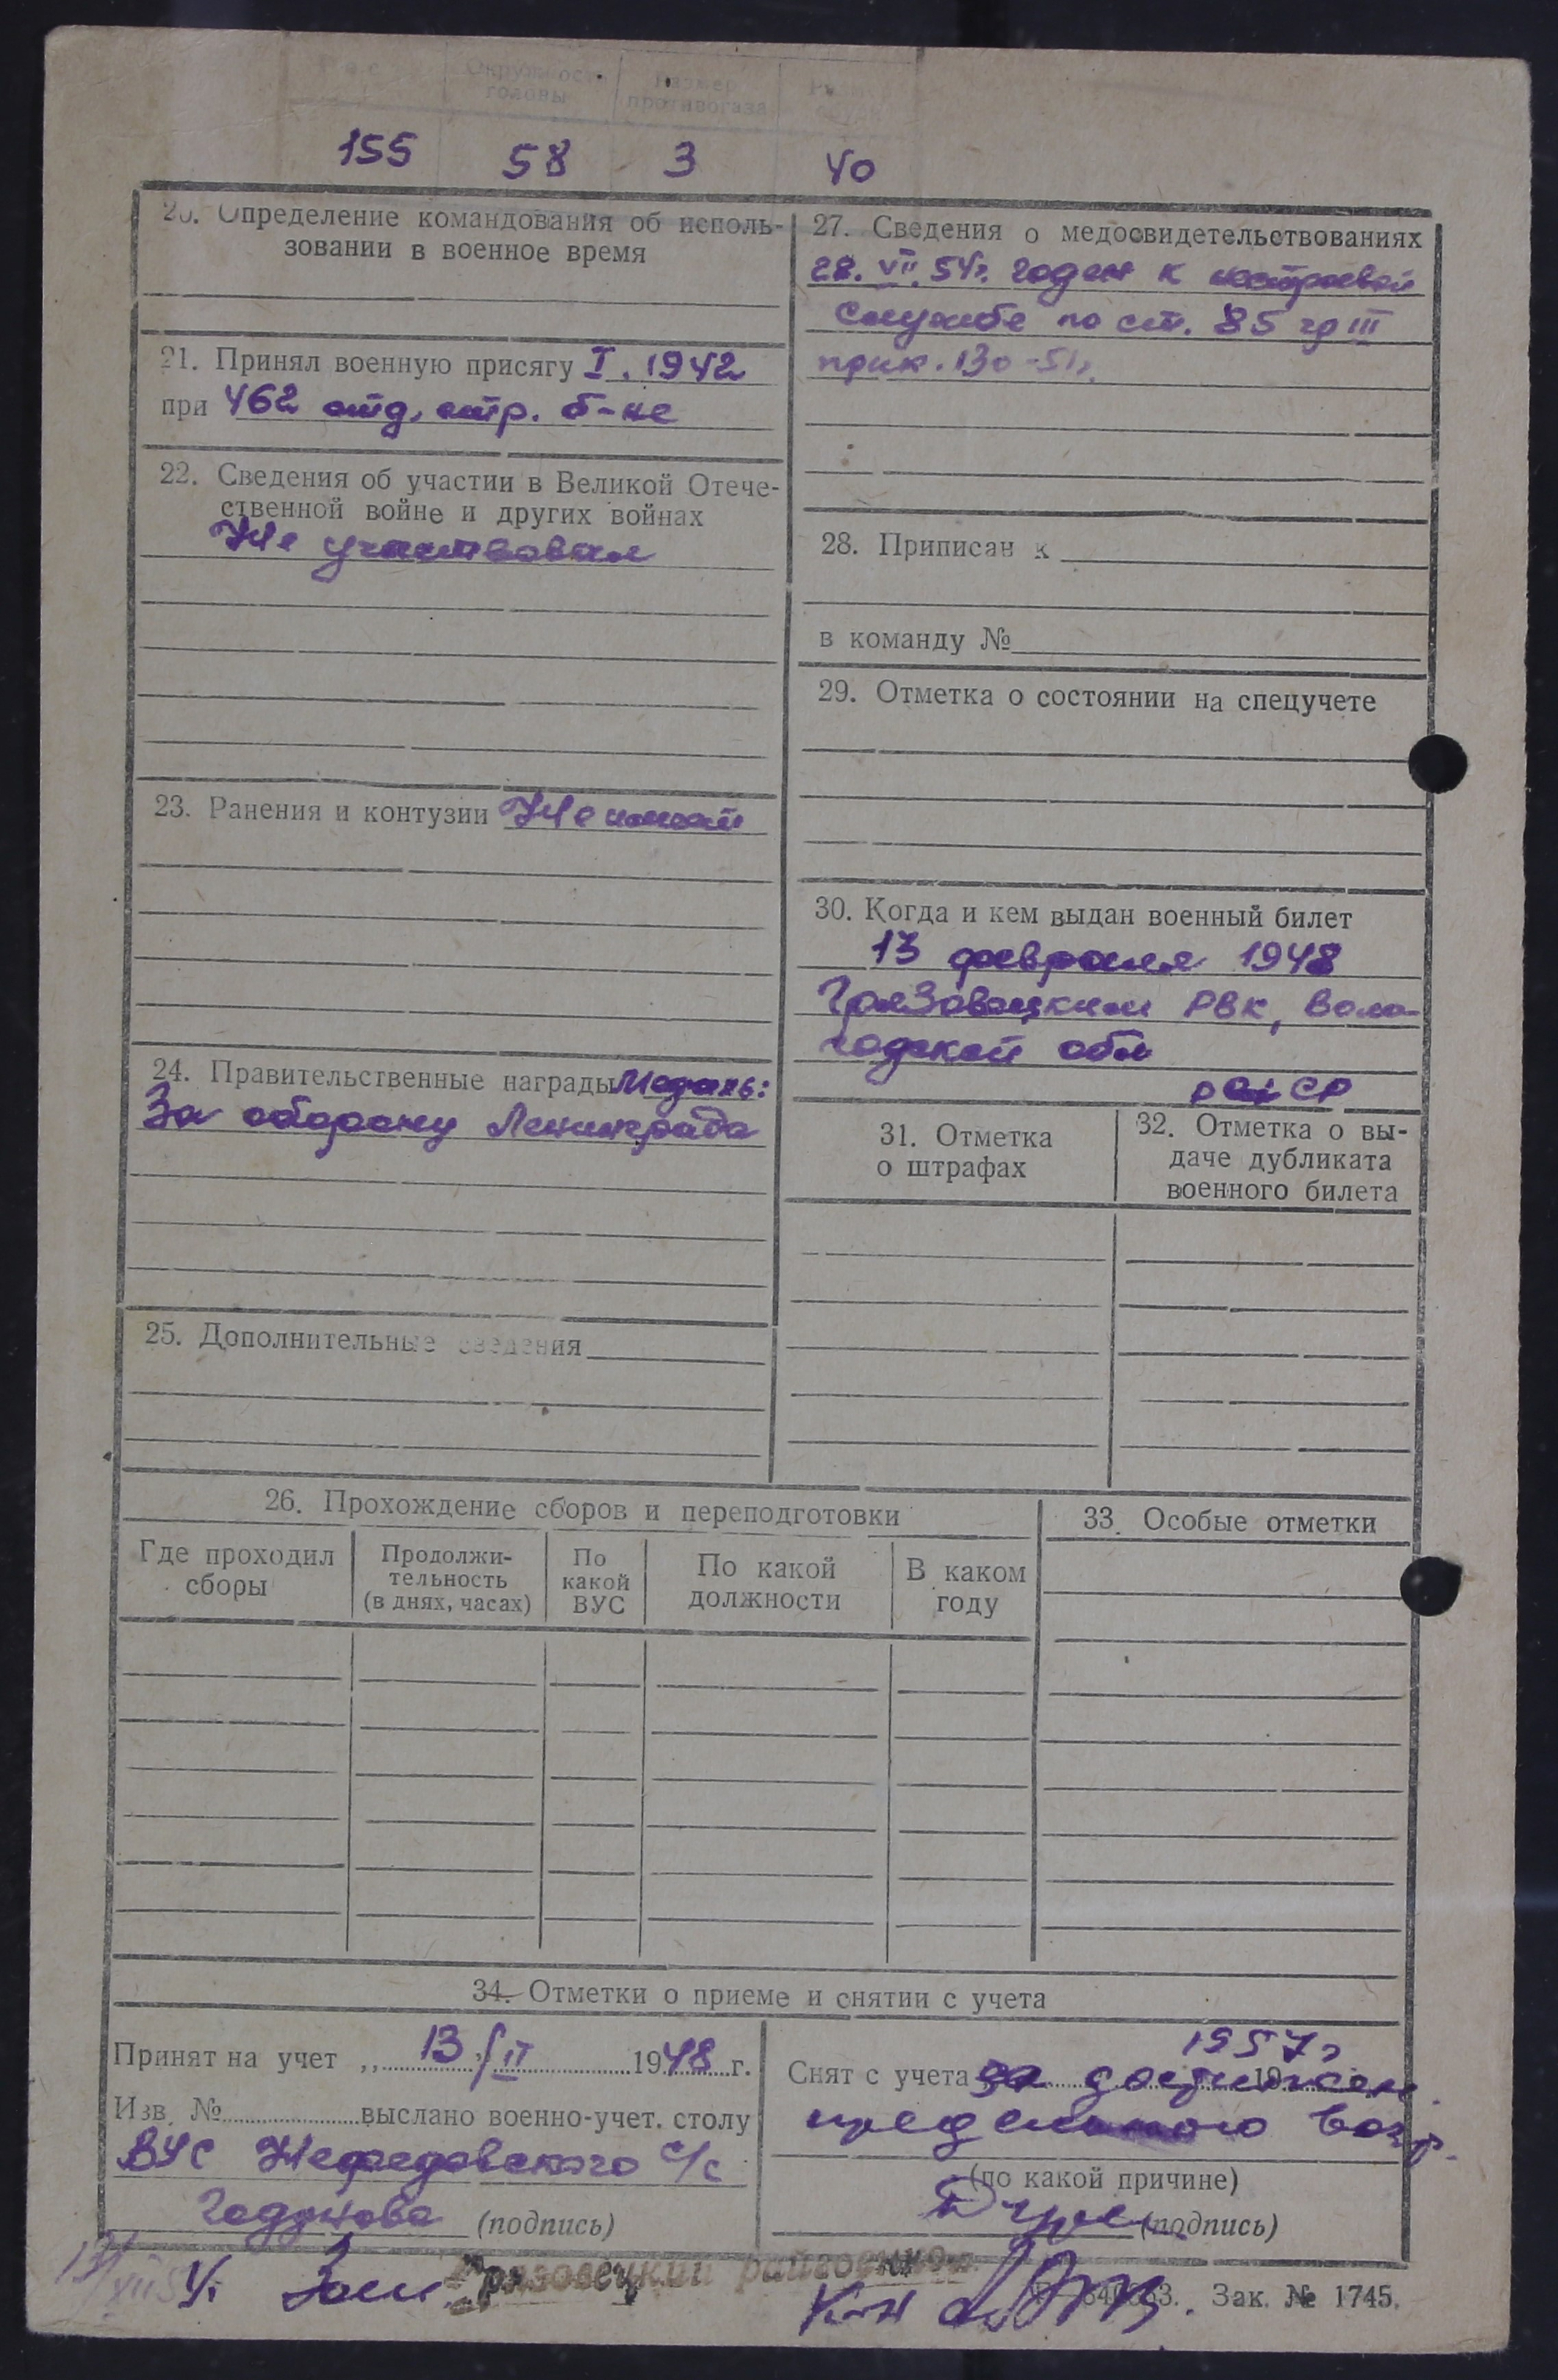 Рост Окружность Размер
головы противогаза
155 58 3 40
20. Определение командования об исполь-
зовании в военное время
21. Принял военную присягу I. 1942
при 462 отд. стр. б-не
22. Сведения об участии в Великой Отече-
ственной войне и других войнах
Не участвовал
23. Ранения и контузии Не имеет
24. Правительственные награды Медаль:
За оборону Ленинграда
25. Дополнительные сведения
27. Сведения о медосвидетельствованиях
28. VII. 54г. годен к нестроевой
службе по ст. 85 гр III
прик. 130-51г.
28. Приписан к
в команду №
29. Отметка о состоянии на спецучете
30. Когда и кем выдан военный билет
13 февраля 1948
Грязовецким РВК, Воло-
годской обл
31. Отметка
о штрафах
32. Отметка о вы-
даче дубликата
военного билета
26. Прохождение сборов и переподготовки
Где проходил
сборы
Продолжи-
тельность
(в днях, часах)
По
какой
ВУС
По какой
должности
В каком
году
33. Особые отметки
34. Отметки о приеме и снятии с учета
Принят на учет „ 13 " II 1948 г.
Изв. № выслано военно-учет. столу
ВУС Нефедовского с/с
Годунова (подпись)
1957г
Снят с учета за достижен.
предельного возр.
(по какой причине)
(подпись)
Грязовецкий райвоенком
Зак. № 1745.